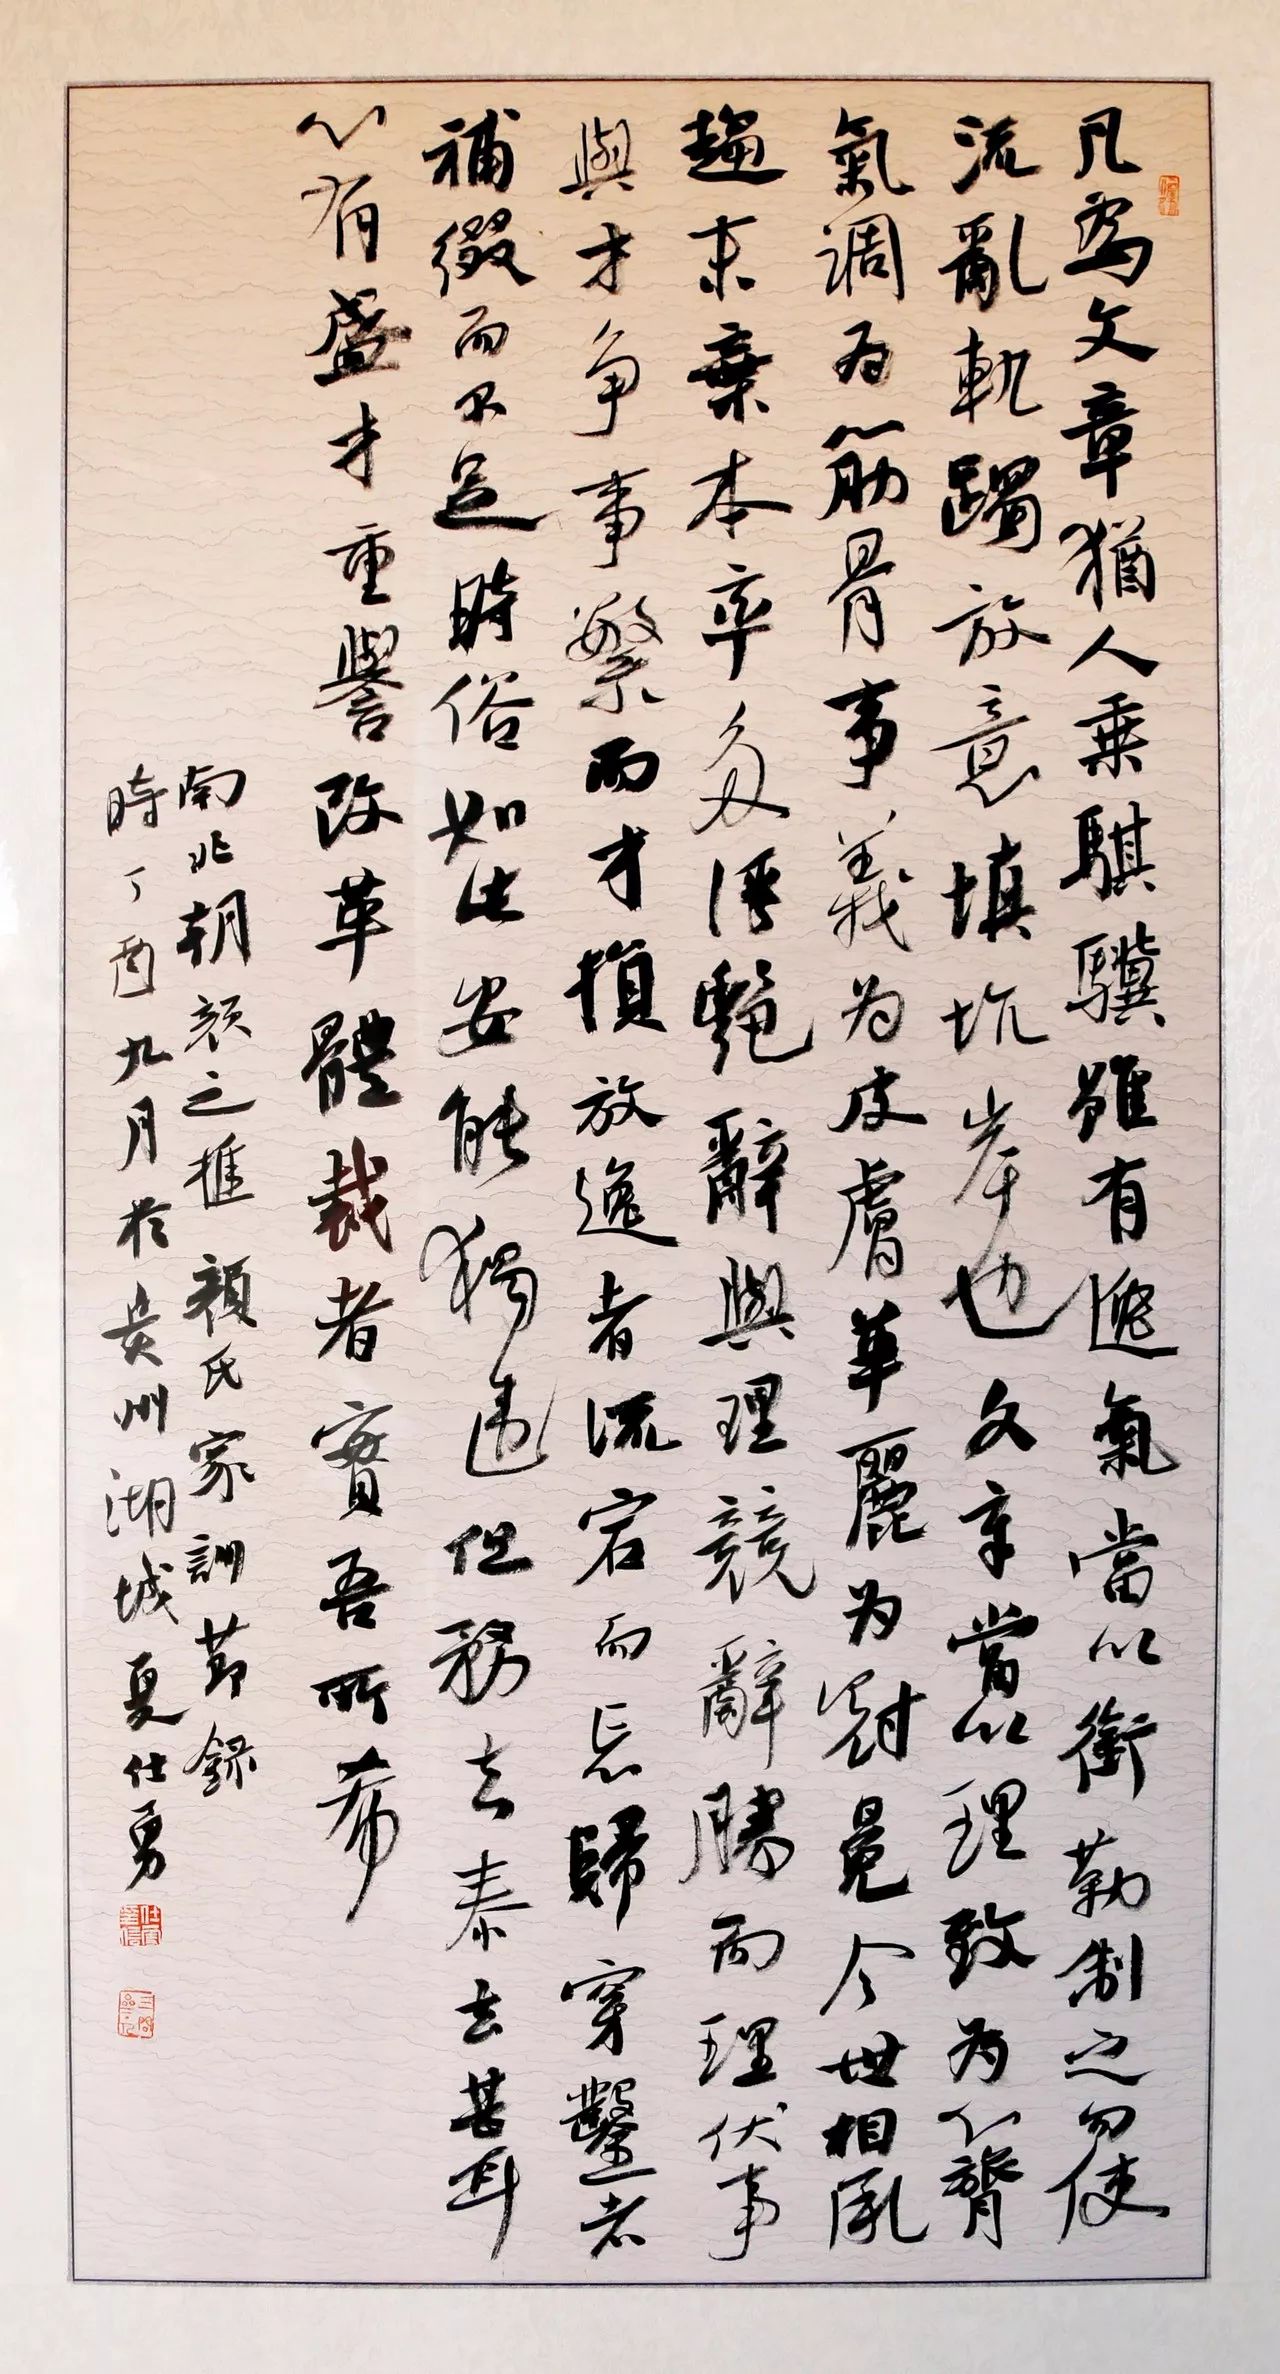 凡為文章猶人乘騏驥雖有逸氣當以銜勒制之勿使
流亂軌躅放意填坑岸也文章當以理致為心腎
氣調為筋骨事義為皮膚華麗為冠冕今世相承
趨末棄本率多浮艷辭與理競辭勝而理伏事
與才争事繁而才損放逸者流宕而忘歸穿鑿者
補綴而不足時俗如此安能獨違但務去泰去甚耳
必有盛才重譽改革體裁者實吾所希
南北朝顏之推顏氏家訓節録
時丁酉九月於貴州湖城夏仕勇